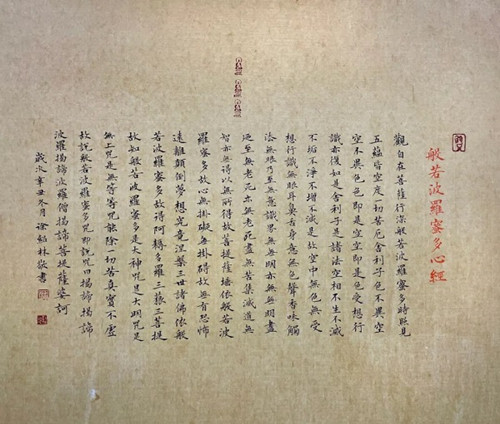 般若波羅蜜多心經
觀自在菩薩行深般若波羅蜜多時照見
五蘊皆空度一切苦厄舍利子色不異空
空不異色色即是空空即是色受想行
識亦復如是舍利子是諸法空相不生不滅
不垢不淨不增不減是故空中無色無受
想行識無眼耳鼻舌身意無色聲香味觸
法無眼乃至無意識界無無明亦無無明盡
乃至無老死亦無老死盡無苦集滅道無
智亦無得以無所得故菩提薩埵依般若波
羅蜜多故心無掛礙無掛礙故無有恐怖
遠離顛倒夢想究竟涅槃三世諸佛依般
若波羅蜜多故得阿耨多羅三藐三菩提
故知般若波羅蜜多是大神咒是大明咒是
無上咒是無等等咒能除一切苦真實不虛
故說般若波羅蜜多咒即說咒曰揭諦揭諦
波羅揭諦波羅僧揭諦菩提薩婆訶
歲次辛丑冬月 徐林敬書